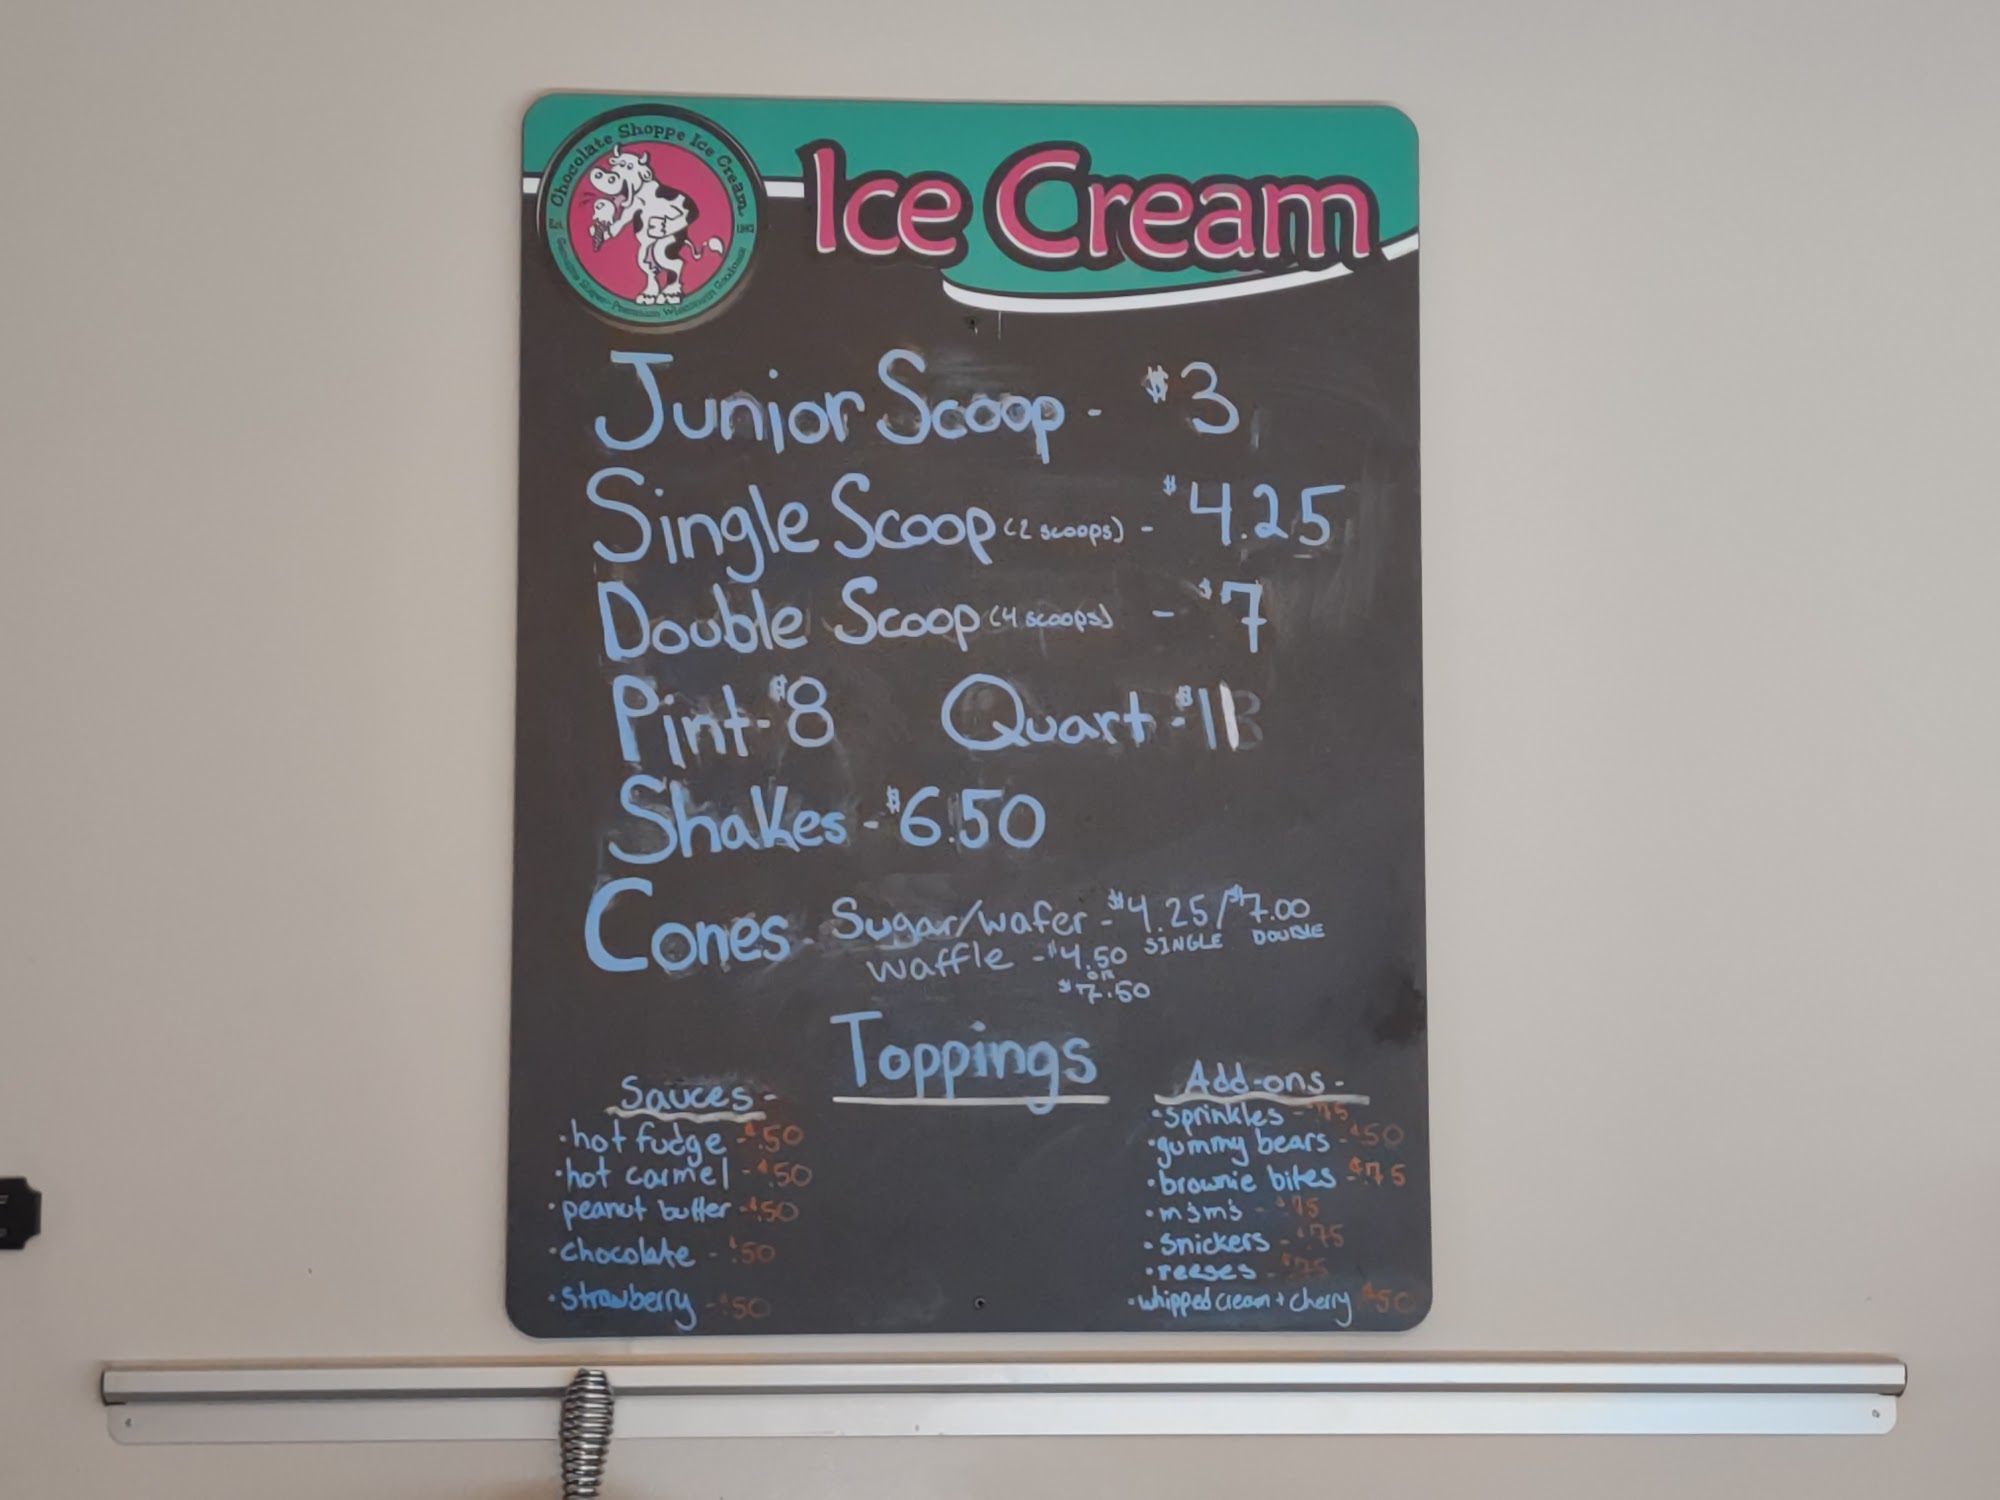 Chocolate Shoppe Ice Cream
Est. 1962
Genuine Super-Premium Wisconsin Goodness
Ice Cream
Junior Scoop - $3
Single Scoop (2 scoops) - $4.25
Double Scoop (4 scoops) - $7
Pint - $8 Quart - $11
Shakes - $6.50
Cones - Sugar/wafer - $4.25/$7.00
SINGLE DOUBLE
waffle - $4.50
OR
$7.50
Toppings
Sauces -
• hot fudge - $.50
• hot carmel - $.50
• peanut butter - $.50
• chocolate - $.50
• strawberry - $.50
Add-ons -
• sprinkles - $.75
• gummy bears - $.50
• brownie bites - $.75
• m&m's - $.75
• snickers - $.75
• reeses - $.75
• whipped cream + cherry $.50